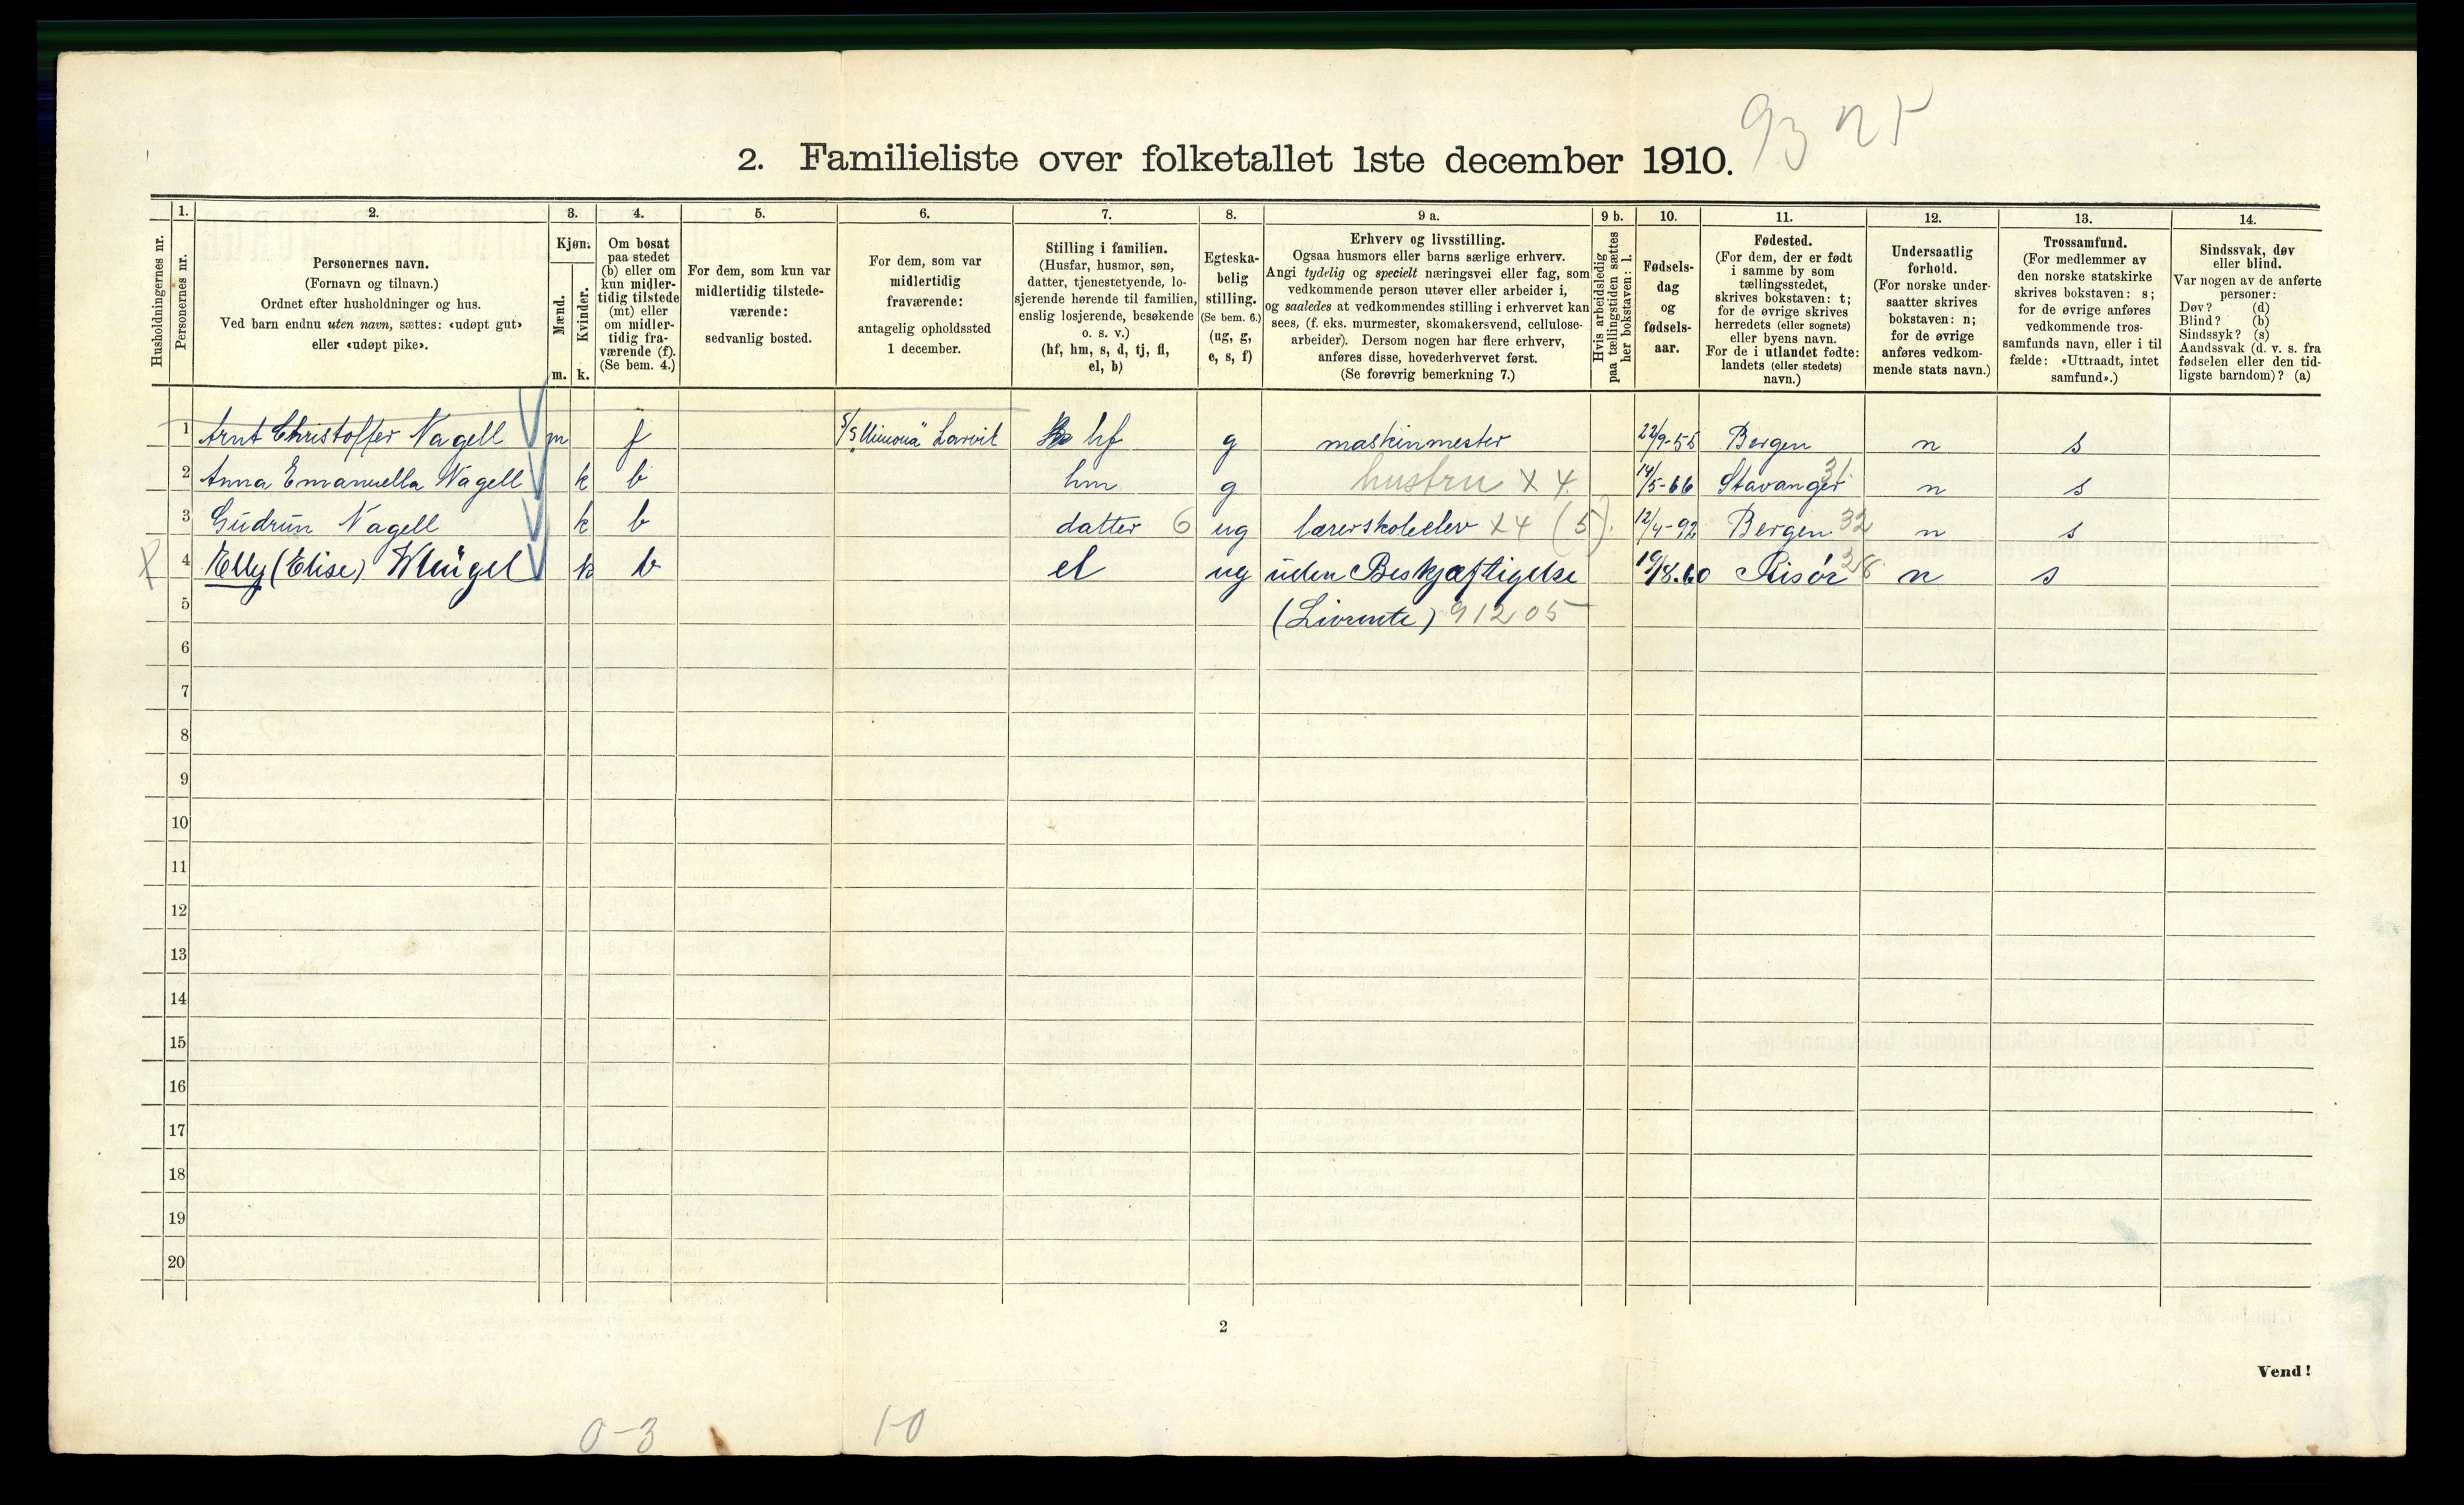 93 n r
2. Familieliste over folketallet 1ste december 1910.
Husholdningernes nr.
1.
Personernes nr.
2.
Personernes navn.
(Fornavn og tilnavn.)
Ordnet efter husholdninger og hus.
Ved barn endnu uten navn, sættes: «udøpt gut»
eller «udøpt pike».
3.
Kjøn.
Mænd.
Kvinder.
m. k.
4.
Om bosat
paa stedet
(b) eller om
kun midler-
tidig tilstede
(mt) eller
om midler-
tidig fra-
værende (f).
(Se bem. 4.)
5.
For dem, som kun var
midlertidig tilstede-
værende:
sedvanlig bosted.
6.
For dem, som var
midlertidig
fraværende:
antagelig opholdssted
1 december.
7.
Stilling i familien.
(Husfar, husmor, søn,
datter, tjenestetyende, lo-
sjerende hørende til familien,
enslig losjerende, besøkende
o. s. v.)
(hf, hm, s, d, tj, fl,
el, b)
8.
Egteska-
belig
stilling.
(Se bem. 6.)
(ug, g,
e, s, f)
9 a.
Erhverv og livsstilling.
Ogsaa husmors eller barns særlige erhverv.
Angi tydelig og specielt næringsvei eller fag, som
vedkommende person utøver eller arbeider i,
og saaledes at vedkommendes stilling i erhvervet kan
sees, (f. eks. murmester, skomakersvend, cellulose-
arbeider). Dersom nogen har flere erhverv,
anføres disse, hovederhvervet først.
(Se forøvrig bemerkning 7.)
9 b.
Hvis arbeidsledig
paa tællingstiden sættes
her bokstaven: l.
10.
Fødsels-
dag
og
fødsels-
aar.
11.
Fødested.
(For dem, der er født
i samme by som
tællingsstedet,
skrives bokstaven: t;
for de øvrige skrives
herredets (eller sognets)
eller byens navn.
For de i utlandet fødte:
landets (eller stedets)
navn.)
12.
Undersaatlig
forhold.
(For norske under-
saatter skrives
bokstaven: n;
for de øvrige
anføres vedkom-
mende stats navn.)
13.
Trossamfund.
(For medlemmer av
den norske statskirke
skrives bokstaven: s;
for de øvrige anføres
vedkommende tros-
samfunds navn, eller i til
fælde: «Uttraadt, intet
samfund».)
14.
Sindssvak, døv
eller blind.
Var nogen av de anførte
personer:
Døv? (d)
Blind? (b)
Sindssyk? (s)
Aandssvak (d. v. s. fra
fødselen eller den tid-
ligste barndom)? (a)
1 Arnt Christoffer Nagell m f S/S "Minona" Larvik hf g maskinmester 22/9-55 Bergen n s
2 Anna Emanuella Nagell k b hm g hustru x 4. 14/5-66 Stavanger 31 n s
3 Gudrun Nagell k b datter 6 ug lærerskoleelev x4 (5). 12/4-92 Bergen 32 n s
4 Elly (Elise) k b el ug uden Beskjæftigelse 19/8.60 Risör 28 n s
5 (Livrente) 91205
6
7
8
9
10
11
12
13
14
15
16
17
18
19
20
2
Vend!
0-3 1-0